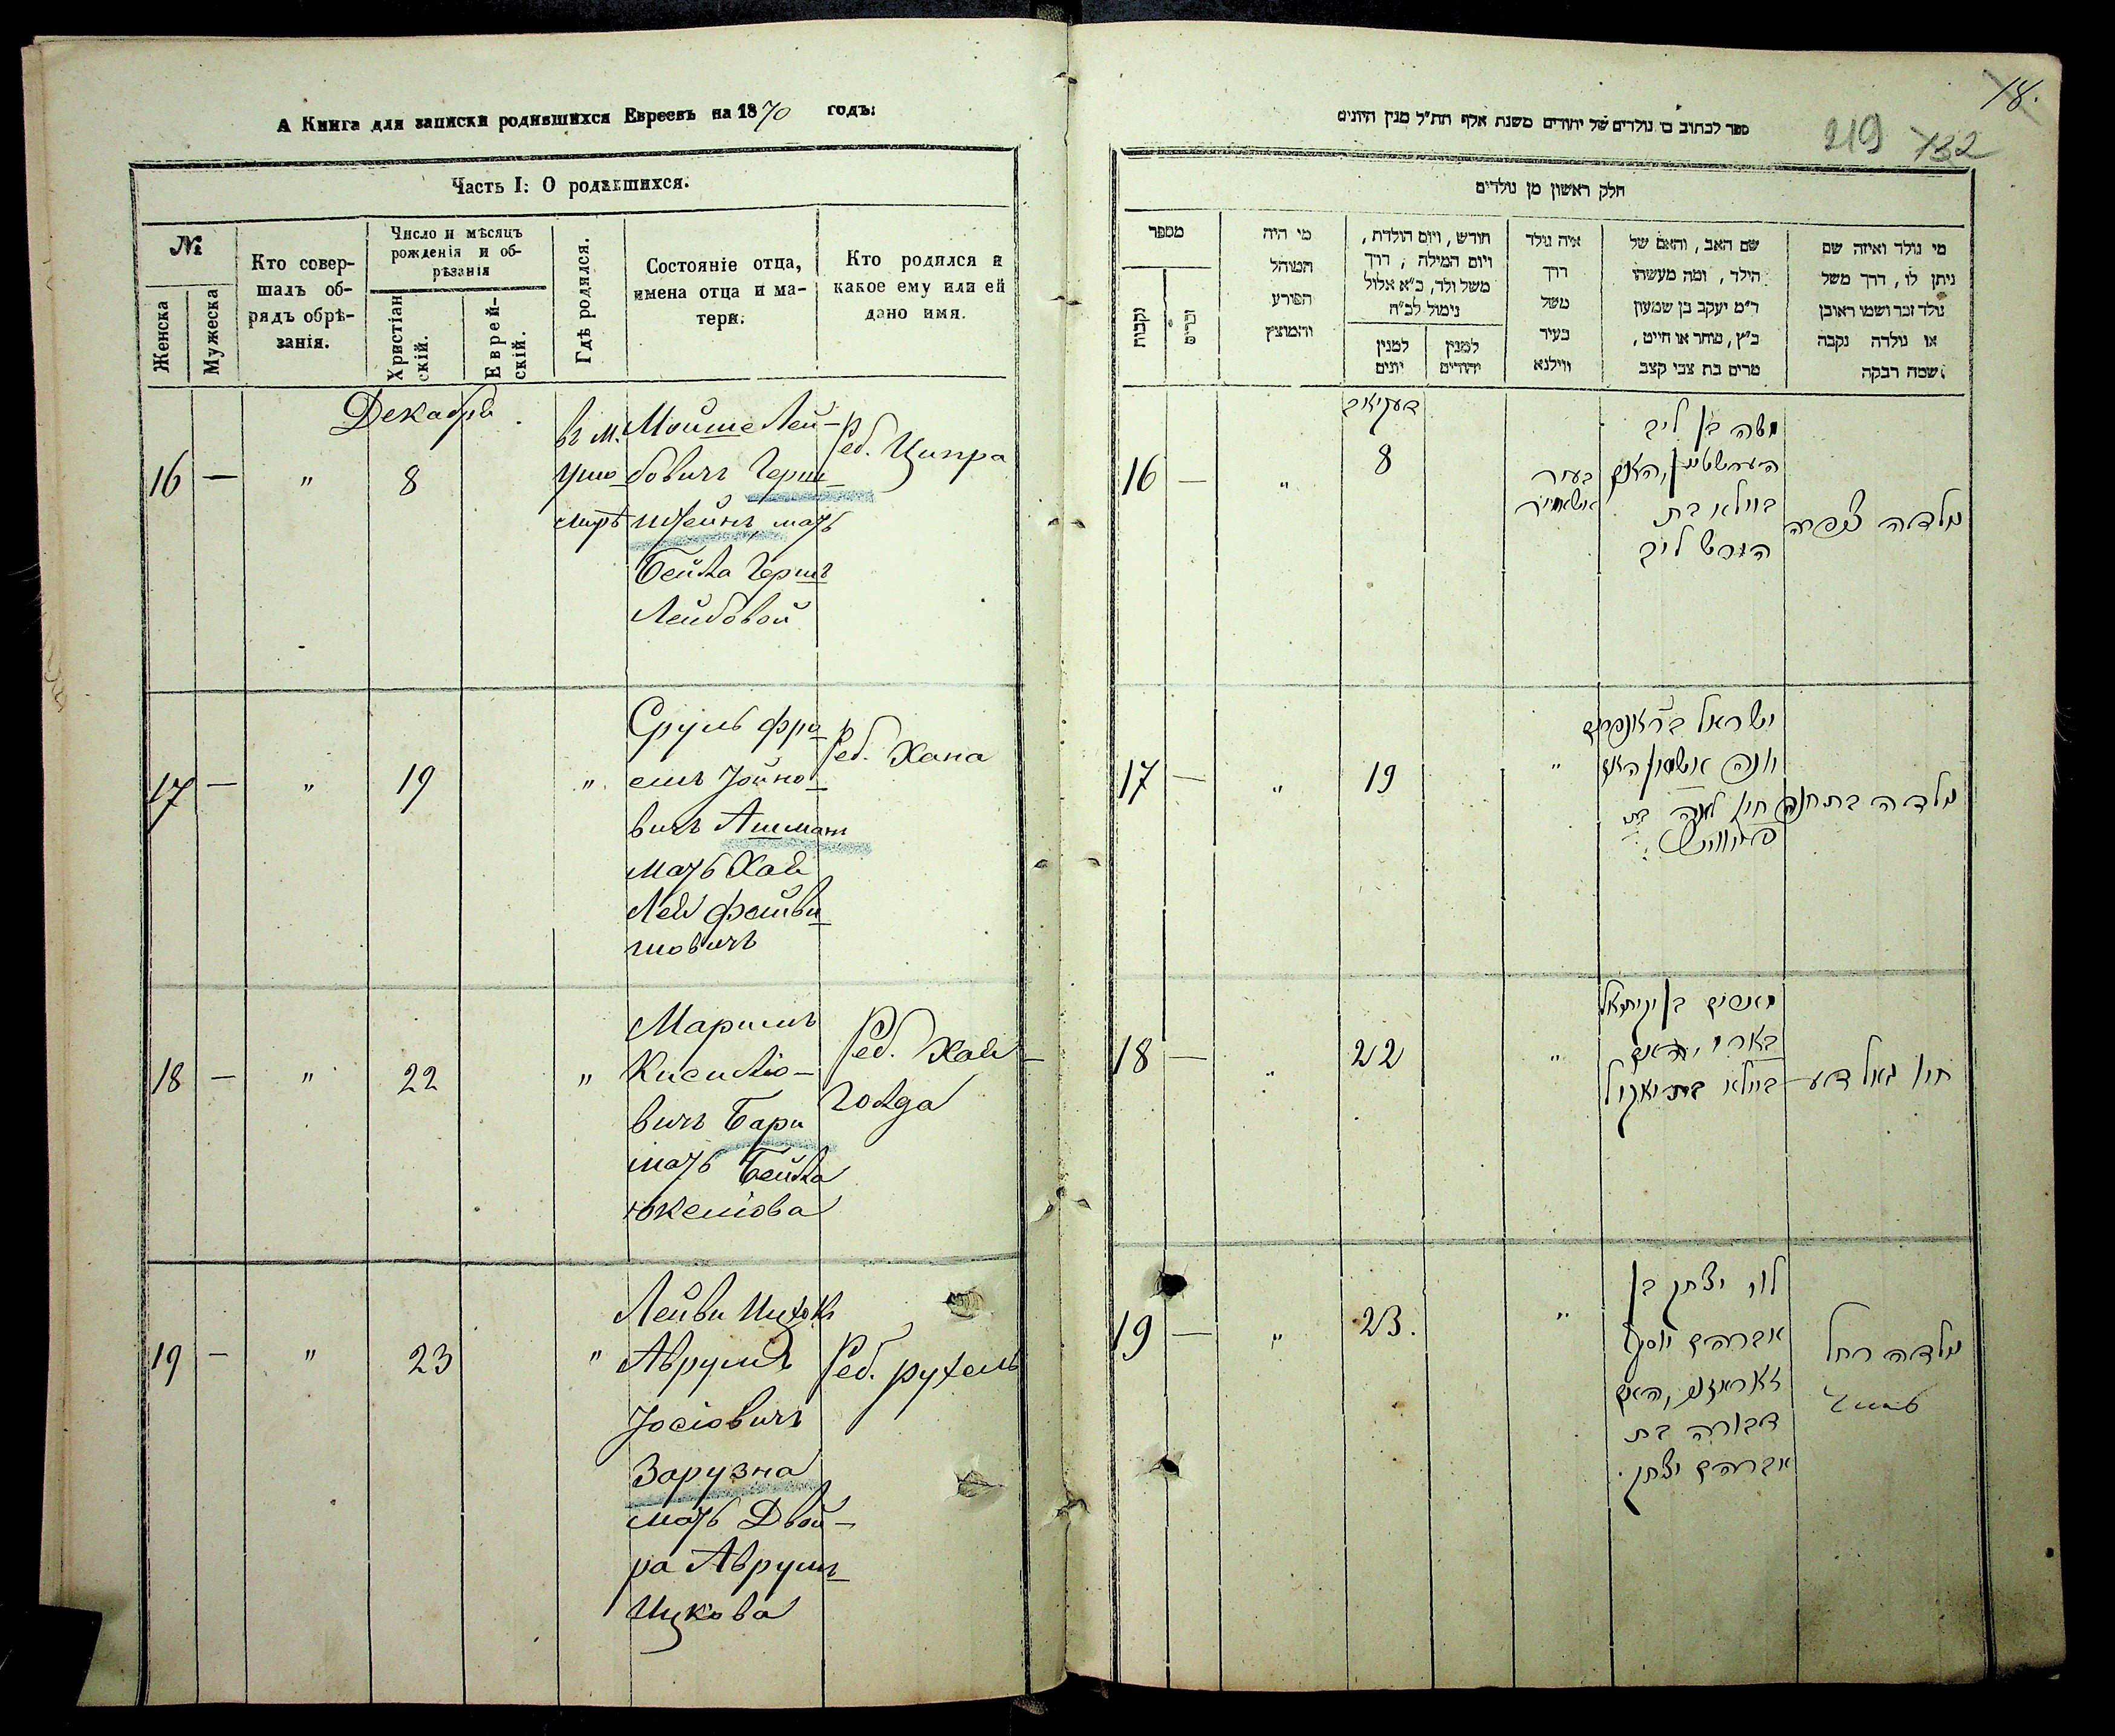 А Книга для записки родившихся Евреевъ на 1870 годъ:
Часть I: О родившихся.
№
Женска
Мужеска
Кто совер-
шалъ об-
рядъ обрѣ-
занія.
Число и мѣсяцъ
рожденія и об-
рѣзанія
Христіан
скій.
Еврей-
скій.
Гдѣ родился.
Состояніе отца,
имена отца и ма-
тери.
Кто родился и
какое ему или ей
дано имя.
Декабря
16 — " 8
въ м.
Мойше Лей-
бовичъ Герш-
штейнъ, мать
Бейла Гершъ
Лейбовой
Реб. Ципра
17 — " 19 "
Сруль Фро-
имъ Іойно-
вичъ Ашманъ
мать Хая
Лея Файви-
шовичъ
Реб. Хана
18 — " 22 "
Кисилю-
вичъ Бари
мать Бейла
Реб. Хая
Голда
19 — " 23 "
Лейви Ицхокъ
Аврумъ
Іосіовичъ
Зарузна
мать Двой-
ра Аврумъ
Ицкова
Реб. рухель
18.
219 732
ספר לכתוב בו נולדים של יהודים משנת אלף תת״ל מנין היונים
חלק ראשון מן נולדים
מספר
נקבות
זכרים
מי היה
המוהל
הפורע
והמוצץ
חודש, ויום הולדת,
ויום המילה, דרך
משל ולד, כ״א אלול
נימול לכ״ח
למנין
יונים
למנין
יהודים
איה נולד
דרך
משל
בעיר
ווילנא
שם האב, והאם של
הילד, ומה מעשהו
ר״מ יעקב בן שמעון
כ״ץ, סוחר או חייט,
מרים בת צבי קצב
מי נולד ואיזה שם
ניתן לו, דרך משל
נולד זכר ושמו ראובן
או נולדה נקבה
שמה רבקה.
16 — " 8
בעיר
משה בן ליב
הערשטיין, האם
ביילא בת
הירש ליב
נולדה צפרה
17 — " 19 "
ישראל
יונה אשמאן האם
חיה לאה בת
נולדה בת חנה
18 — " 22 "
בארי, האם
ביילא בת יאקיל
חיה גאלדע
19 — " 23. "
לוי יצחק בן
אברהם יוסף
זארוזנע, האם
דבורה בת
אברהם יצחק.
נולדה רחל